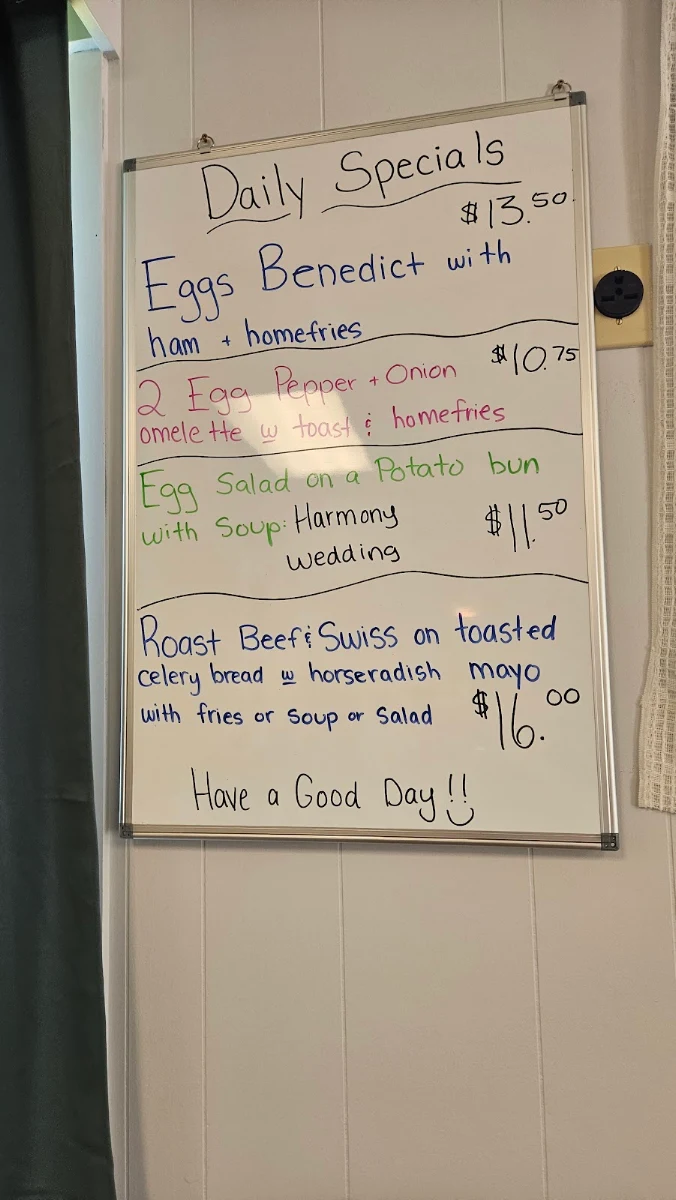 Daily Specials
$13.50
Eggs Benedict with
ham + homefries
$10.75
2 Egg Pepper + Onion
omelette w toast & homefries
Egg Salad on a Potato bun
with Soup: Harmony $11.50
wedding
Roast Beef & Swiss on toasted
celery bread w horseradish mayo
with fries or soup or salad $16.00
Have a Good Day!!